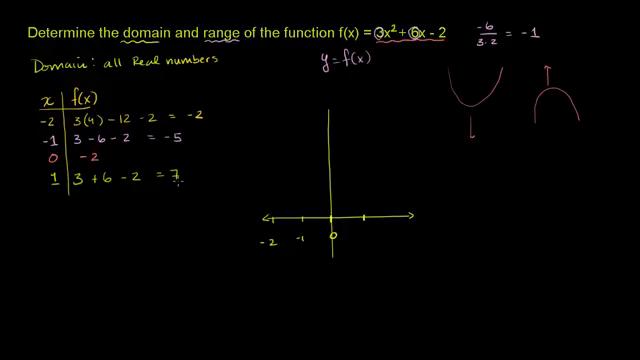 Determine the domain and range of the function f(x) = 3x² + 6x - 2
-6 / 3·2 = -1
Domain: all Real numbers
y = f(x)
x f(x)
-2 3(4) - 12 - 2 = -2
-1 3 - 6 - 2 = -5
0 -2
1 3 + 6 - 2 = 7
-2 -1 0